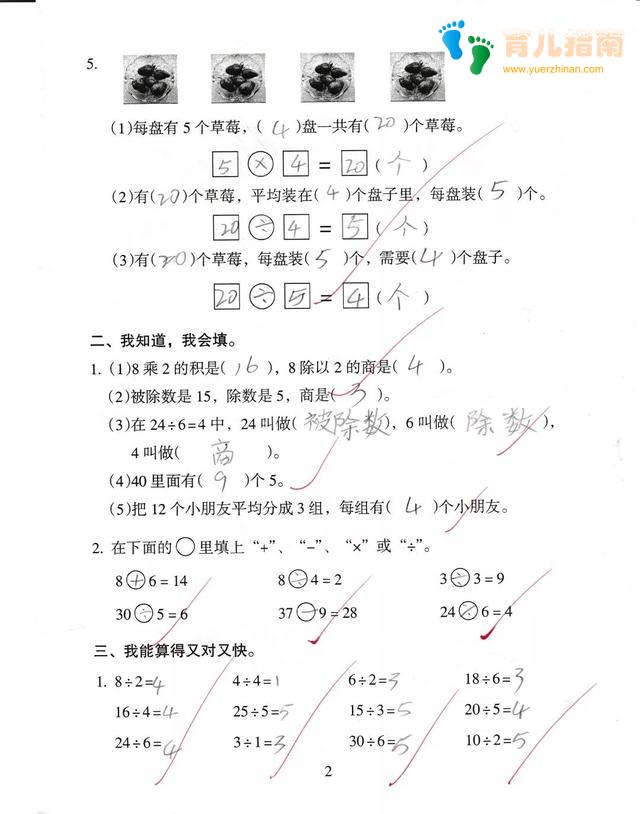 育儿指南
www.yuerzhinan.com
5.
(1)每盘有5个草莓，( 4 )盘一共有( 20 )个草莓。
5 × 4 = 20 ( 个 )
(2)有( 20 )个草莓，平均装在( 4 )个盘子里，每盘装( 5 )个。
20 ÷ 4 = 5 ( 个 )
(3)有( 20 )个草莓，每盘装( 5 )个，需要( 4 )个盘子。
20 ÷ 5 = 4 ( 个 )
二、我知道，我会填。
1. (1)8乘2的积是( 16 )，8除以2的商是( 4 )。
(2)被除数是15，除数是5，商是( 3 )。
(3)在24÷6=4中，24叫做( 被除数 )，6叫做( 除数 )，
4叫做( 商 )。
(4)40里面有( 9 )个5。
(5)把12个小朋友平均分成3组，每组有( 4 )个小朋友。
2. 在下面的○里填上“+”、“-”、“×”或“÷”。
8 + 6 = 14 8 ÷ 4 = 2 3 ÷ 3 = 9
30 ÷ 5 = 6 37 - 9 = 28 24 ÷ 6 = 4
三、我能算得又对又快。
1. 8÷2=4 4÷4=1 6÷2=3 18÷6=3
16÷4=4 25÷5=5 15÷3=5 20÷5=4
24÷6=4 3÷1=3 30÷6=5 10÷2=5
2